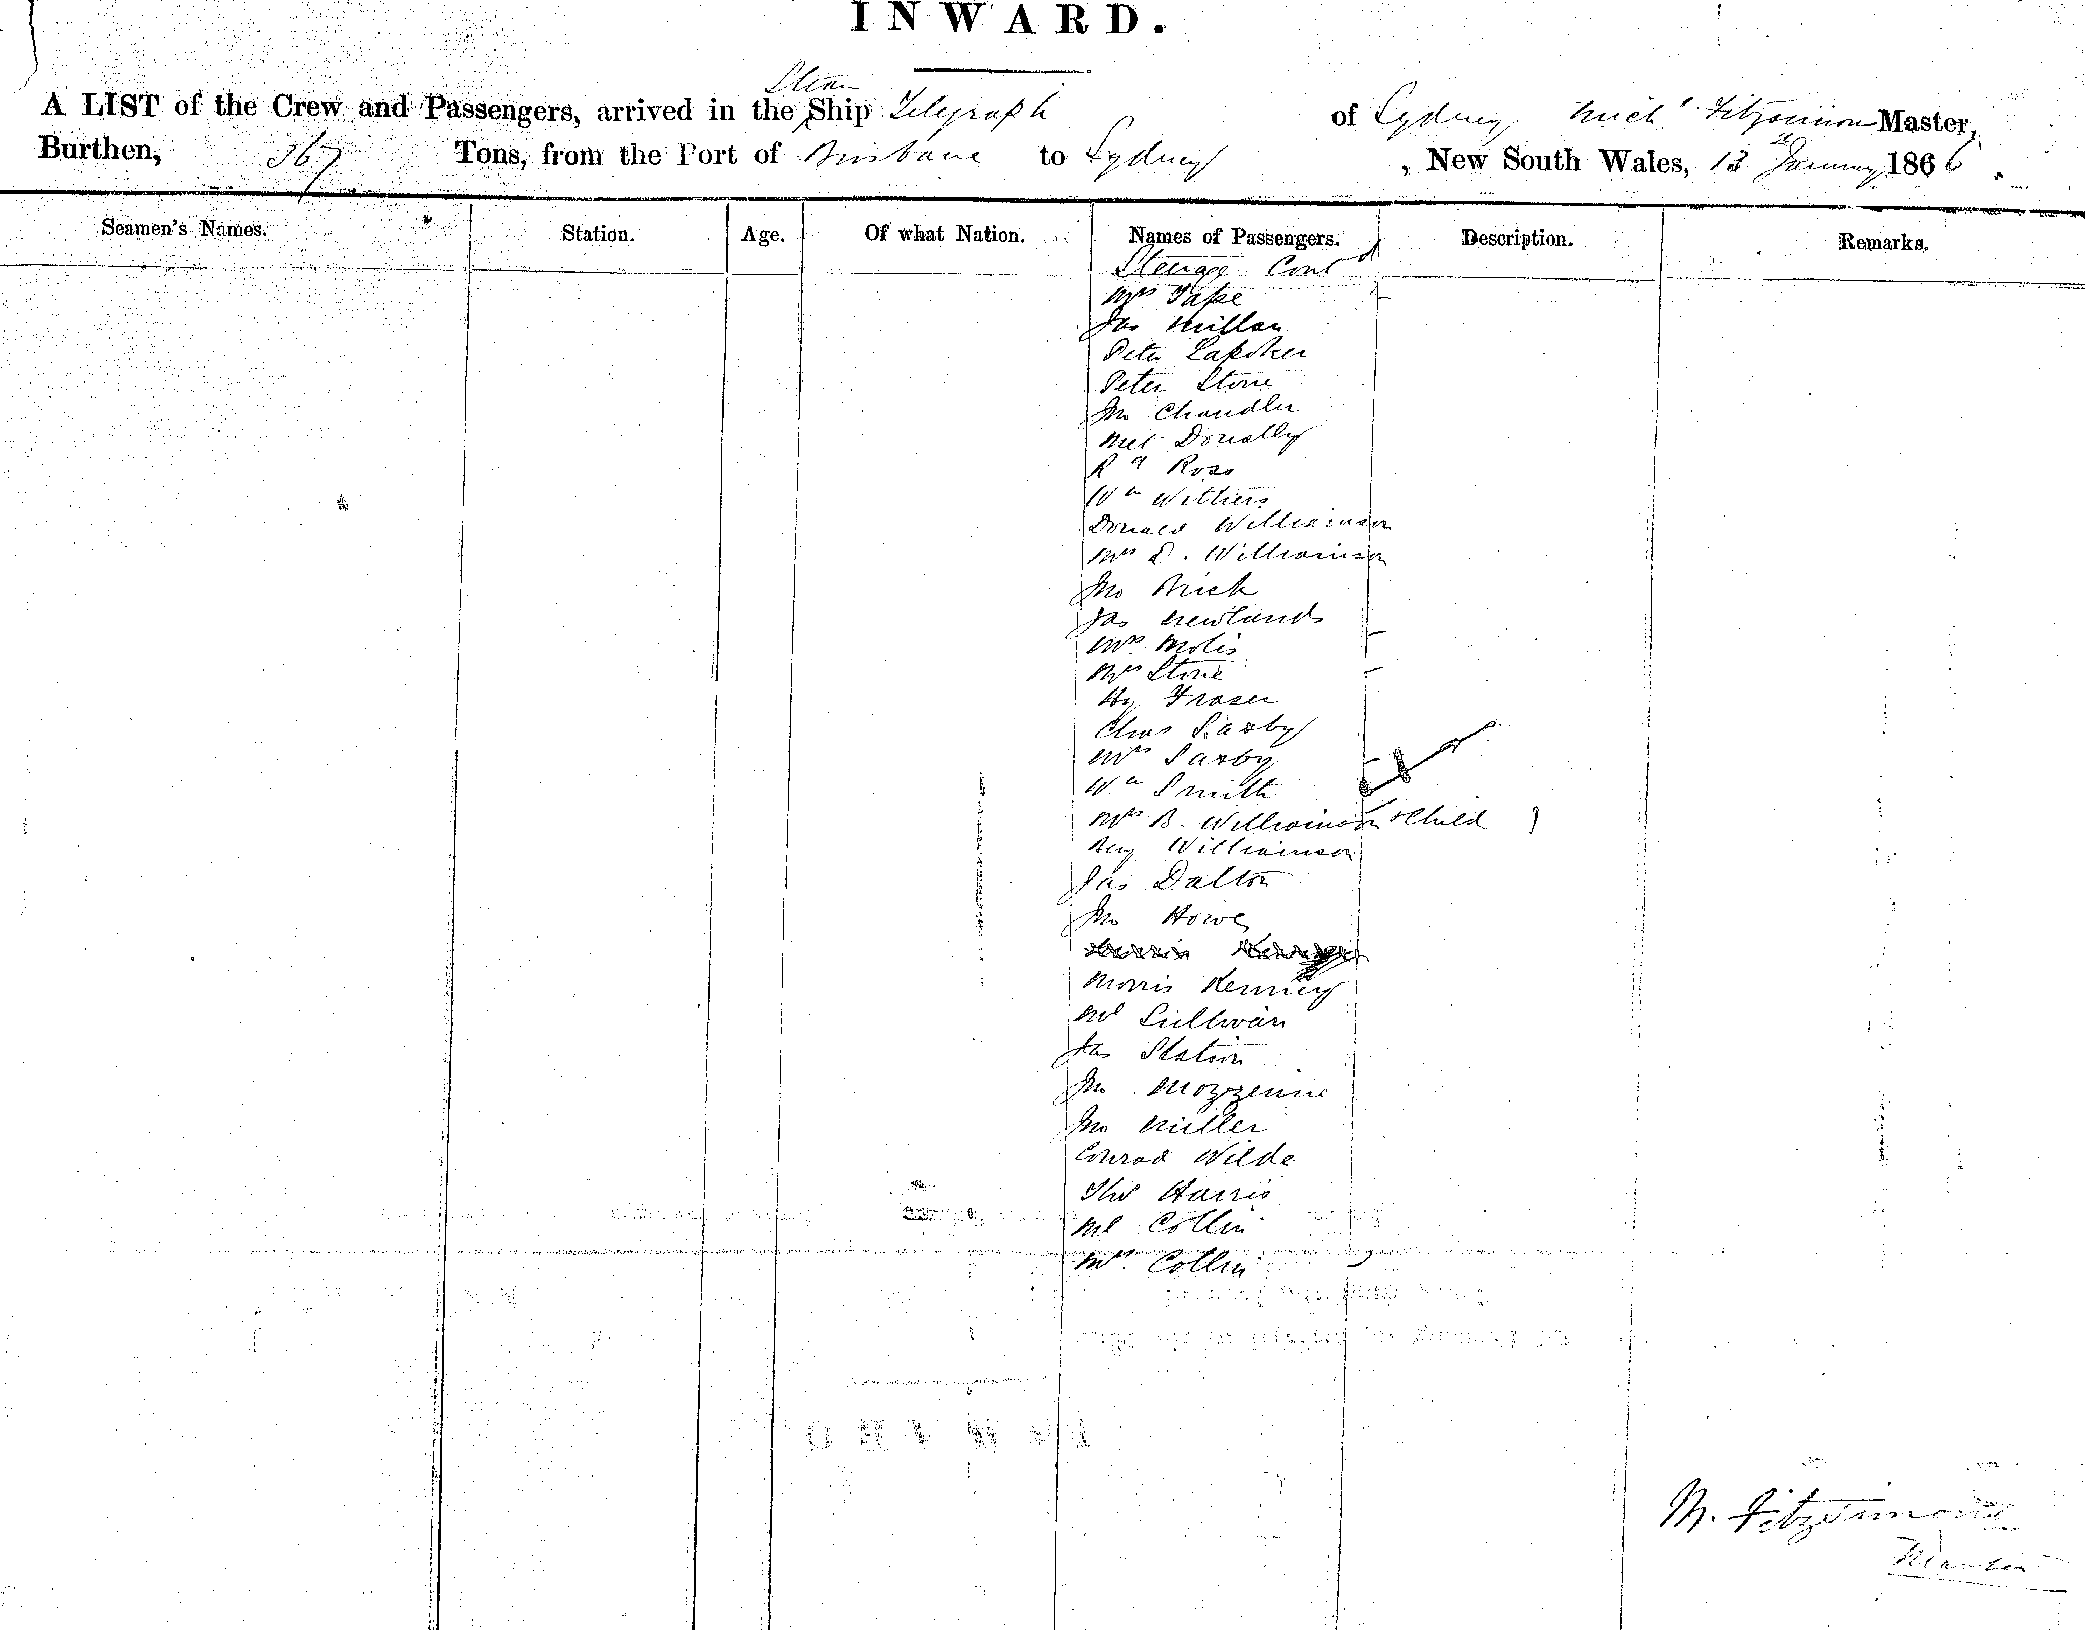 INWARD.
Steam
A LIST of the Crew and Passengers, arrived in the Ship Telegraph of Sydney Mich<sup>l</sup> Fitzsimon Master,
Burthen, 367 Tons, from the Port of Brisbane to Sydney, New South Wales, 13 January 1866.
Seamen's Names. Station. Age. Of what Nation. Names of Passengers. Description. Remarks.
Steerage Cont<sup>d</sup>
Mrs Tape
Jas Millan
Peter
Peter Stone
Jno Chandler
Donolly
R<sup>d</sup> Ross
W<sup>m</sup> Withers
Donald Williamson
Mrs D. Williamson
Jno Brick
Jas Newlands
Mrs Molis
Mrs Stone
Hy Fraser
Chas Saxby
Mrs Saxby
W<sup>m</sup> Smith
Mrs B. Williamson & Child 1
Williamson
Jas Dalton
Jno Howe
Morris Kenney
Ml Sullivan
Jas Station
Jno Mozzenni
Jno Miller
Conrad Wilde
Thos Harris
Ml Collin
Mrs Collin
M. Fitzsimons
Master